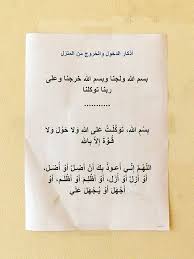 أذكار الدخول والخروج من المنزل
بسم الله ولجنا وبسم الله خرجنا وعلى
ربنا توكلنا
...........
بِسْمِ اللهِ، تَوَكَّلْتُ عَلَى اللهِ وَلَا حَوْلَ وَلَا
قُوَّةَ إِلَّا بِاللهِ
اللَّهُمَّ إِنِّي أَعُوذُ بِكَ أَنْ أَضِلَّ أَوْ أُضَل،
أَوْ أَزِلَّ، أَوْ أُزَل، أَوْ أَظْلِمَ، أَوْ أُظْلَم، أَوْ
أَجْهَلَ أَوْ يُجْهَلَ عَلَيَّ